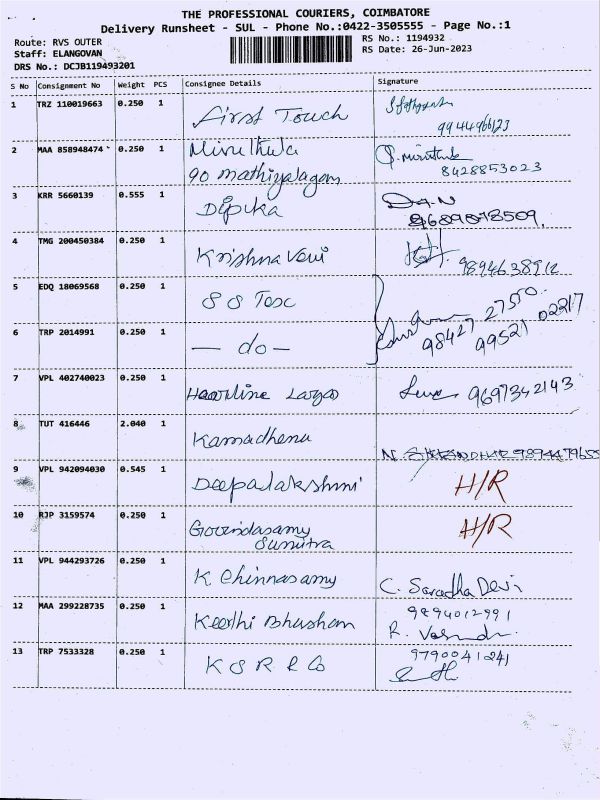 THE PROFESSIONAL COURIERS, COIMBATORE
Delivery Runsheet - SUL - Phone No.:0422-3505555 - Page No.:1
Route: RVS OUTER
RS No.: 1194932
Staff: ELANGOVAN
RS Date: 26-Jun-2023
DRS No.: DCJB119493201
S No Consignment No Weight PCS Consignee Details Signature
1 TRZ 110019663 0.250 1 First Touch
9944966123
2 MAA 858948474 0.250 1 Miruthula
90 mathiyalagan
8428853023
3 KRR 5660139 0.555 1 Dipika
4 TMG 200450384 0.250 1 Krishnaveni 9894638912
5 EDQ 18069568 0.250 1 S S Tesc
6 TRP 2014991 0.250 1 — do —
98427 27550
99521 02217
7 VPL 402740023 0.250 1 9697342143
8 TUT 416446 2.040 1 Kamadhenu
9 VPL 942094030 0.545 1 Deepalakshmi H/R
10 RJP 3159574 0.250 1 Govindasamy H/R
Sumitra
11 VPL 944293726 0.250 1 K Chinnasamy C. Saradha Devi
12 MAA 299228735 0.250 1 Keerthi Bhushan 9894012991
R.
13 TRP 7533328 0.250 1 K S R & Co 9790041241